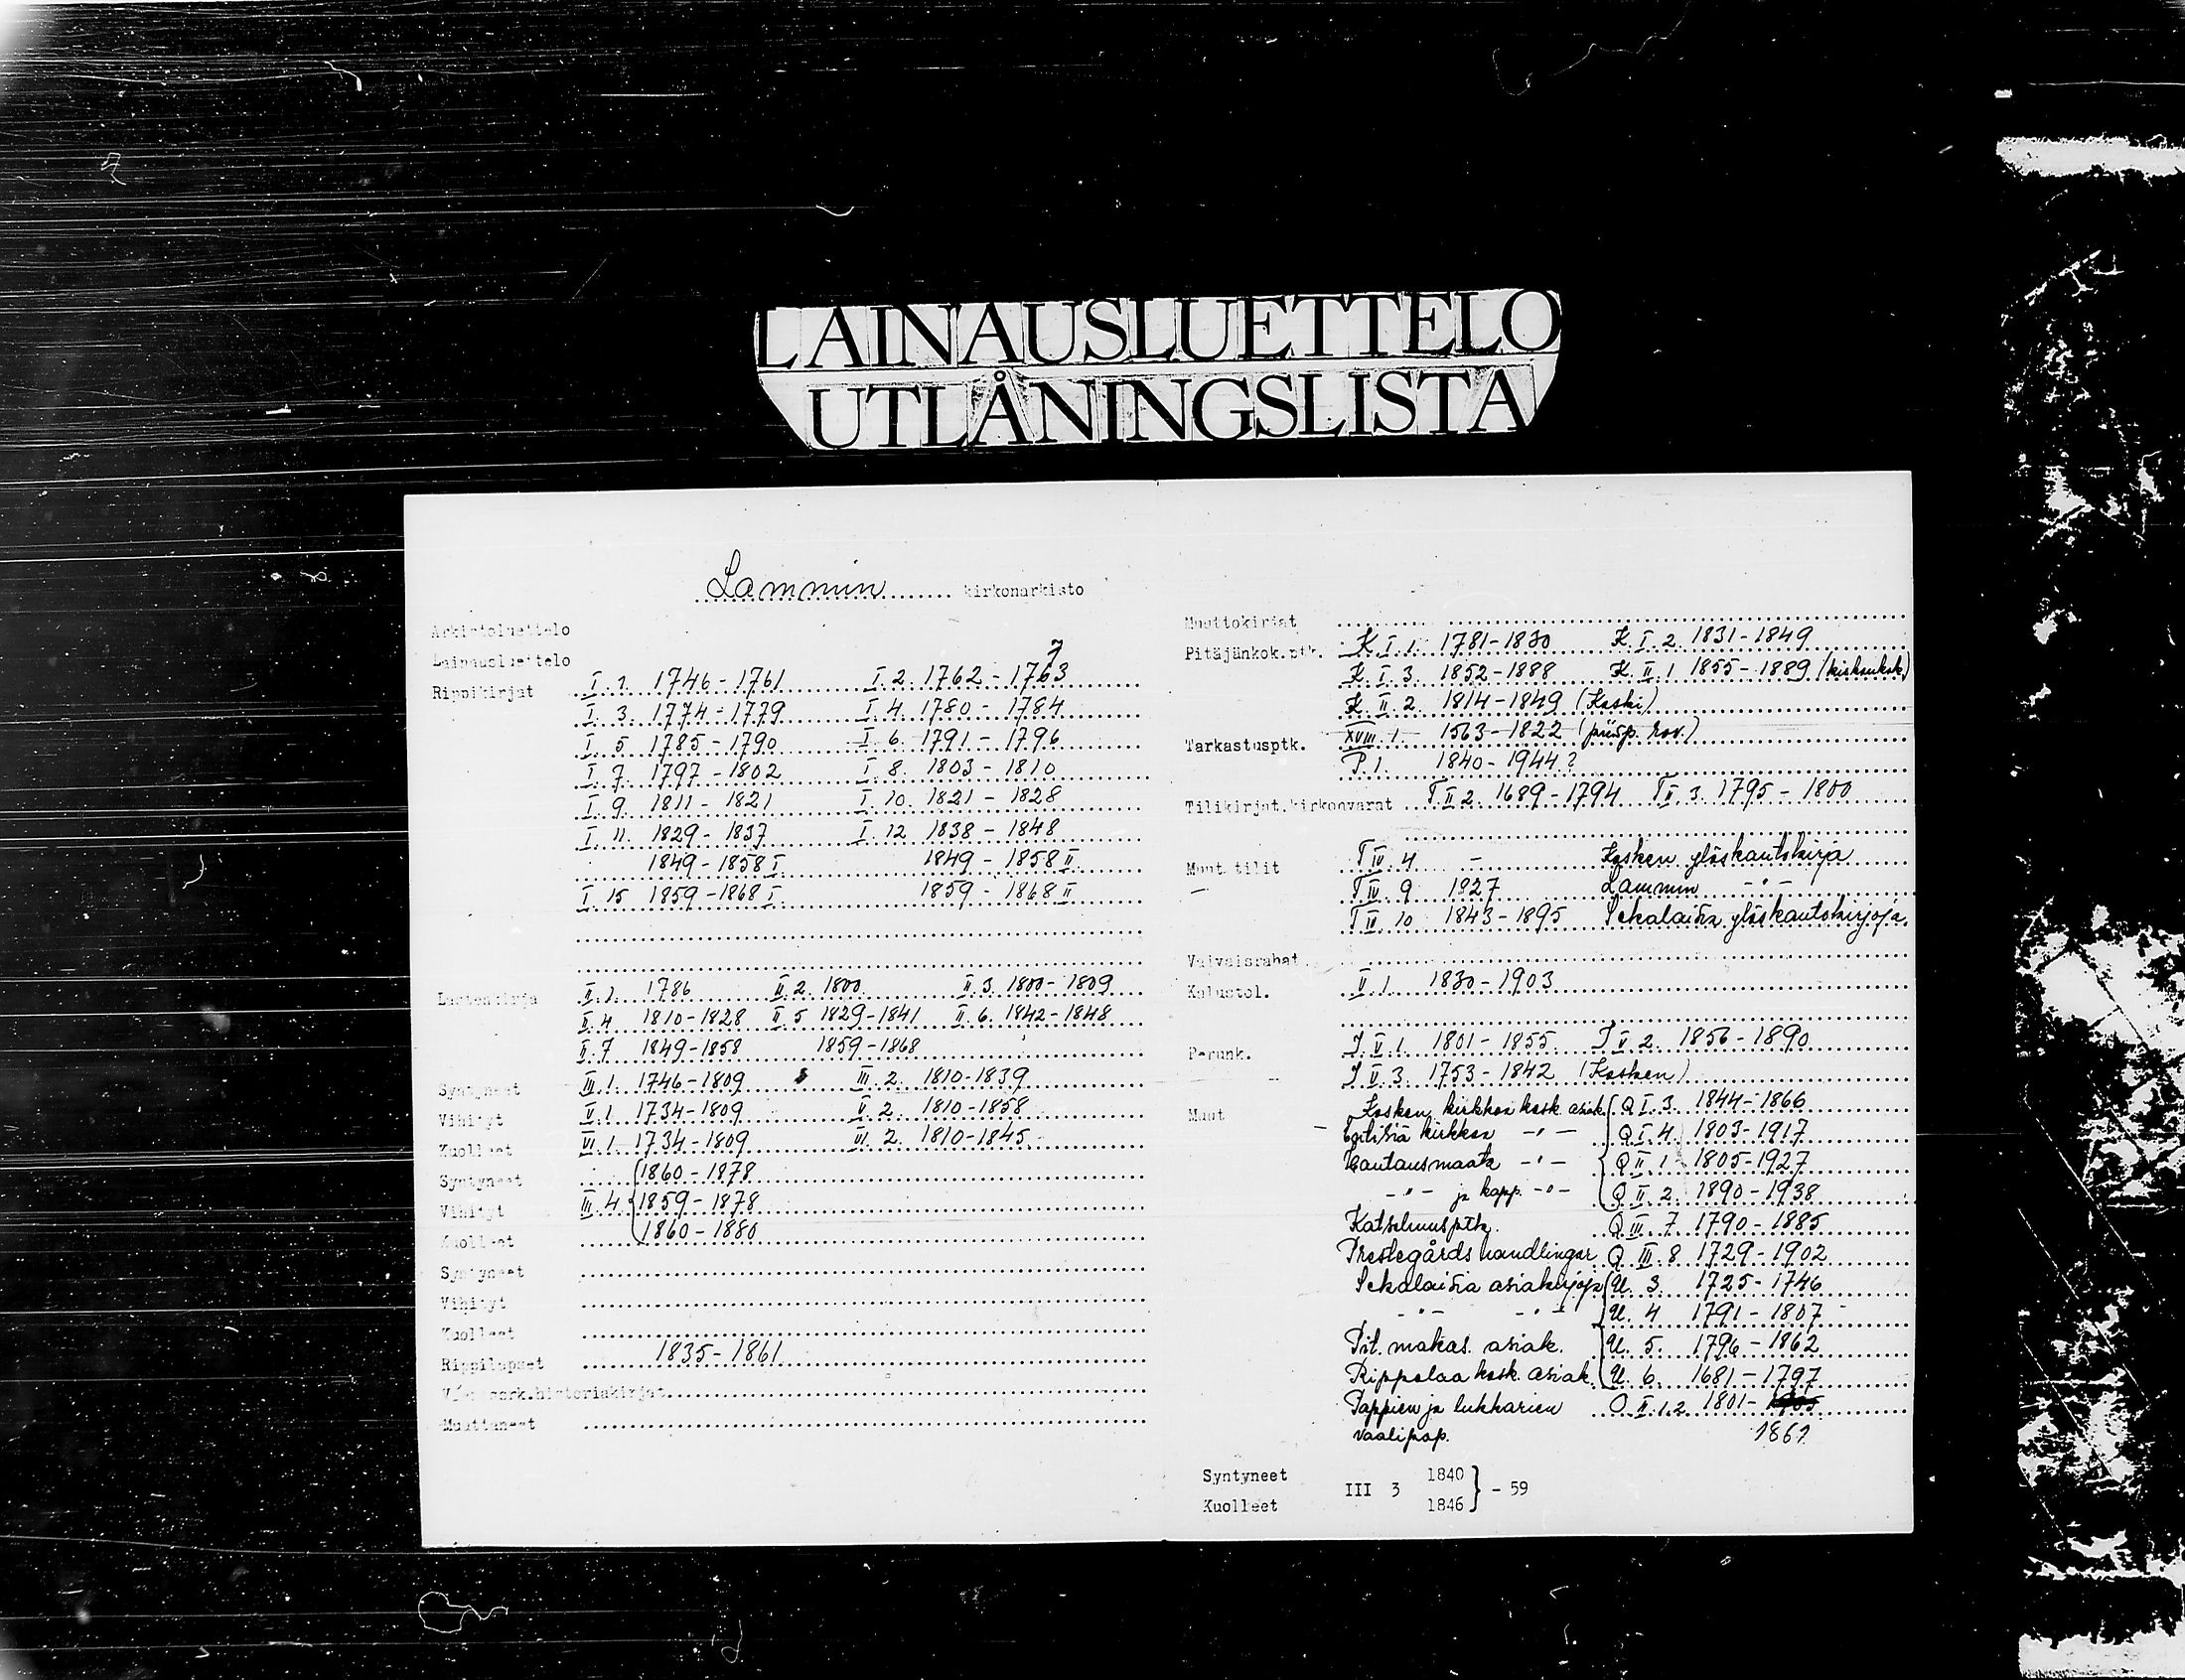 LAINAUSLUETTELO
UTLÅNINGSLISTA
Lammin kirkonarkisto
Arkistoluettelo
Lainausluettelo
Rippikirjat I. 1. 1746-1761 I. 2. 1762-1763 7
I. 3. 1774-1779 I. 4. 1780-1784
I. 5 1785-1790 I. 6. 1791-1796
I. 7. 1797-1802 I. 8. 1803-1810
I. 9. 1811-1821 I. 10. 1821-1828
I. 11. 1829-1837 I. 12 1838-1848
1849-1858 I 1849-1858 II
I. 15 1859-1868 I 1859-1868 II
Lastenkirja II. 1. 1786 II. 2. 1800 II. 3. 1800-1809
II. 4 1810-1828 II. 5 1829-1841 II. 6. 1842-1848
II. 7 1849-1858 1859-1868
Syntyneet III. 1. 1746-1809 III. 2. 1810-1839
Vihityt V. 1. 1734-1809 V. 2. 1810-1858
Kuolleet VI. 1. 1734-1809 VI. 2. 1810-1845
Syntyneet 1860-1878
Vihityt III. 4 1859-1878
Kuolleet 1860-1880
Syntyneet
Vihityt
Kuolleet
Rippilapset 1835-1861
historiakirjat
Muuttaneet
Muuttokirjat
Pitäjänkok.ptk. K. I. 1. 1781-1830 K. I. 2. 1831-1849
K. I. 3. 1852-1888 K. II. 1 1855-1889 (kirkonkok)
K. II. 2. 1814-1849 (Koski)
Tarkastusptk. XVIII. 1 1563-1822 (piisp. rov.)
P. 1. 1840-1944?
Tilikirjat.kirkonvarat T II 2. 1689-1794 T II. 3. 1795-1800
Muut tilit T IV. 4 - Kosken yloskantokirja
T IV. 9 1927 Lammin -"-
T IV 10 1843-1895 Sekalaisia ylöskantokirjoja
Vaivaisrahat
Kalustol. V. 1. 1830-1903
Perunk. J V. 1. 1801-1855 J V. 2. 1856-1890
J V. 3. 1753-1842 (Kosken)
Muut Kosken kirkkoa kosk. asiak. Q I. 3. 1844-1866
kirkkoa -"- Q I. 4. 1803-1917
Hautausmaata -"- Q II. 1. 1805-1927
-"- ja kapp. -"- Q II. 2. 1890-1938
Katselmusptk. Q III. 7 1790-1885
Prestegårds handlingar Q III. 8 1729-1902
Sekalaisia asiakirjoja U. 3. 1725-1746
-"- -"- U. 4 1791-1807
Pit. makas. asiak. U. 5. 1796-1862
Rippulaa kosk. asiak. U. 6. 1681-1797
Pappien ja lukkarien O. II. 1.2 1801-
vaalipap. 1861
Syntyneet 1840
III 3 } - 59
Kuolleet 1846